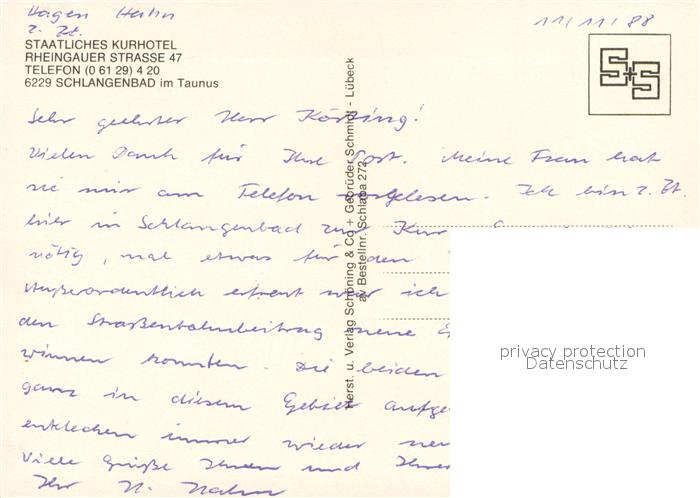 Hagen Hahn
z. Zt.
11/11/88
STAATLICHES KURHOTEL
RHEINGAUER STRASSE 47
TELEFON (0 61 29) 4 20
6229 SCHLANGENBAD im Taunus
S+S
Sehr geehrter Herr Körting!
Vielen Dank für Ihre Post. Meine Frau hat
sie mir am Telefon vorgelesen. Ich bin z. Zt.
hier in Schlangenbad zur Kur
nötig, mal etwas für den
Außerordentlich erfreut war ich
den Straßenbahnbeitrag neue
winnen konnten. Die beiden
ganz in diesem Gebiet aufge
entdecken immer wieder neu
Viele Grüße Ihnen und Ihrer
Ihr H. Hahn
Herst. u. Verlag Schöning & Co + Gebrüder Schmidt - Lübeck
av Bestellnr. Schlaba 272
privacy protection
Datenschutz